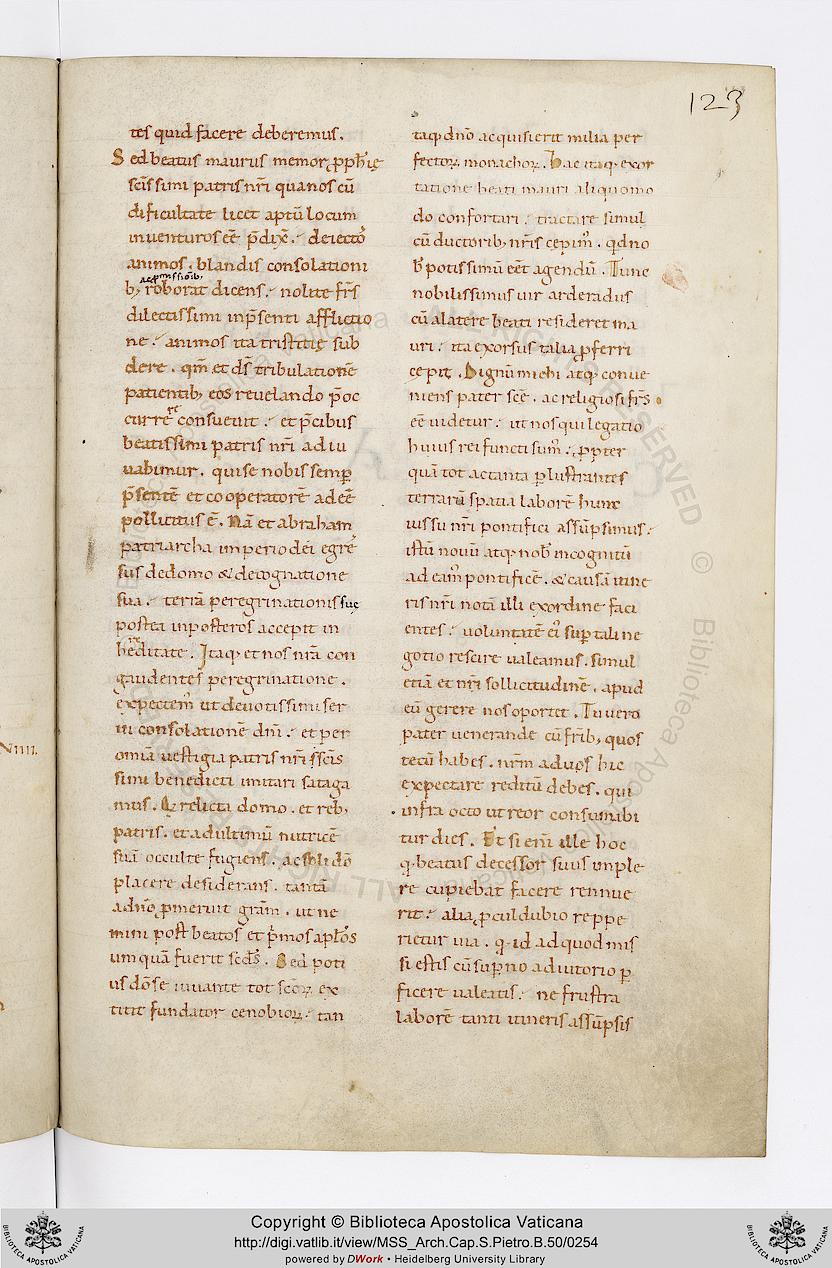 123
tes quid facere deberemus.
Sed beatus maurus memor, pphīę
scīssimi patris nr̄i quanos cū
dificultate licet aptū locum
inventuros eē p̄dix̄. deiecto᷒
animos. blandis consolationi
acp̄missioib;
b; roborat dicens. nolite fr̄s
dilectissimi inp̄senti afflictio
ne. animos ita tristitię sub
dere. qm̄ et ds̄ tribulationē
patientib; eos revelando p̄oc
re
currē consuevit. et p̄cibus
beatissimi patris nr̄i adiu
vabimur. qui se nobis semp̱
p̄sentē et cooperatorē adeē
pollicitus ē. Nā et abraham
patriarcha imperio dei egrē
sus dedomo & decognatione
sua. terrā peregrinationis suę
postea inposteros accepit in
re
heditate. Itaq; et nos nr̄a con
gaudentes peregrinatione.
expectem᷒ ut devotissimi ser
iii consolationē dn̄i. et per
om̄ia vestigia patris nr̄i sc̄is
simi benedicti imitari sataga
mus. Q relicta domo. et reb;
patris. et adultimū nutricē
suā occulte fugiens. ac soli dō
placere desiderans. tantā
adn̄o p̱meruit gr̄am. ut ne
mini post beatos et p̄mos ap̄los
umquā fuerit sc̄ds. Sed poti
us dō se iuvante tot sc̄oꝝ ex
titit fundator cenobioꝝ. tan
taq; dn̄o acquisierit milia per
fectoꝝ monachoꝝ. Hac itaq; exor
tatione beati mauri aliquomo
do confortari. tractare simul
cū ductorib; nr̄is cepim᷒. qd no
b̄ potissimū eēt agendū. Tunc
nobilissimus vir arderadus
cū alatere beati resideret ma
uri. ita exorsus talia p̱ferri
cępit. Dignū michi atq; conve
niens pater sc̄e. ac religiosi fr̄s
eē videtur. ut nos qui legatio
huius rei functi sum᷒. p̱pter
quā tot ac tanta p̱lustrantes
terrarū spatia laborē hunc
iussu nr̄i pontifici assūpsimus.
istū novū atq; nob̄ incognitū
adeam᷒ pontificē. & causā itine
ris nr̄i notā illi exordine faci
entes. voluntatē ei᷒ sup̱ tali ne
gotio rescire valeamus. simul
etiā et nr̄i sollicitudinē. apud
eū gerere nos oportet. Tu vero
pater venerande cū fr̄ib; quos
tecū habes. nr̄m ad vos hic
expectare reditū debes. qui
infra octo ut reor consumabi
tur dies. Et si eni᷒ ille hoc
q; beatus decessor suus imple
re cupiebat facere rennue
rit. alia p̱culdubio reppe
rietur via. q; id adquod mis
si estis cū sup̱no adiutorio p̱
ficere valeatis. ne frustra
laborē tanti itineris assūpsis
Copyright © Biblioteca Apostolica Vaticana
http://digi.vatlib.it/view/MSS_Arch.Cap.S.Pietro.B.50/0254
powered by DWork • Heidelberg University Library